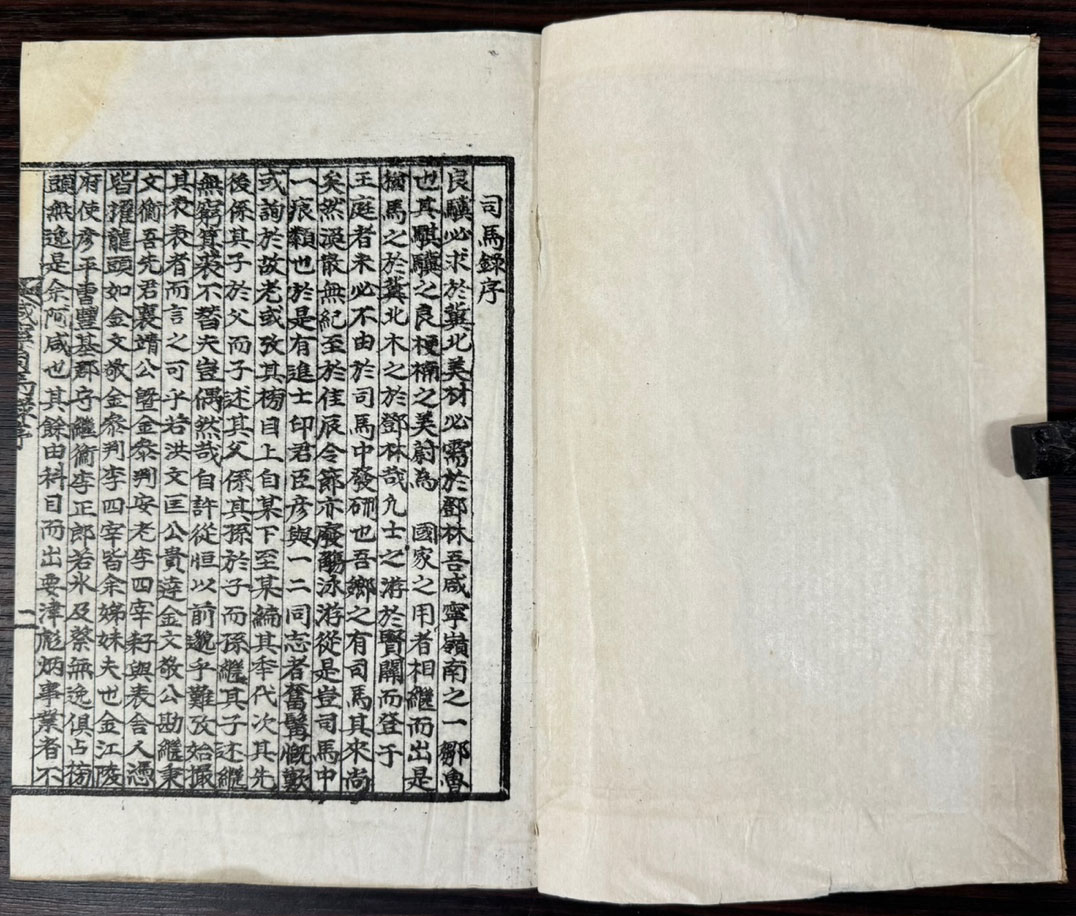 司馬錄序
良驥必求於冀北美材必需於鄧林吾咸寧嶺南之一鄒魯
也其騏驥之良梗楠之美蔚為 國家之用者相繼而出是
猶馬之於冀北木之於鄧林哉凡士之游於賢關而登于
王庭者未必不由於司馬中發硎也吾鄉之有司馬其來尚
矣然渙散無紀至於佳辰令節亦廢觴泳游從是豈司馬中
一痕纇也於是有進士印君臣彦與一二同志者奮髯慨歎
或詢於故老或攷其榜目上自某下至某編其季代次其先
後係其子於父而子述其父係其孫於子而孫繼其子述繼
無窮箕裘不替夫豈偶然哉自許從恒以前邈乎難攷始撮
其表表者而言之可乎若洪文匡公貴達金文敬公勘繼秉
文衡吾先君襄靖公曁金泰判安老李四宰耔與表舍人憑
皆擢龍頭如金文敬金泰判李四宰皆余娣妹夫也金江陵
府使彦平曺豐基郡守繼衡李正郎若氷及蔡無逸俱占榜
頭無逸是余阿咸也其餘由科目而出要津彪炳事業者不
咸寧司馬錄序
一